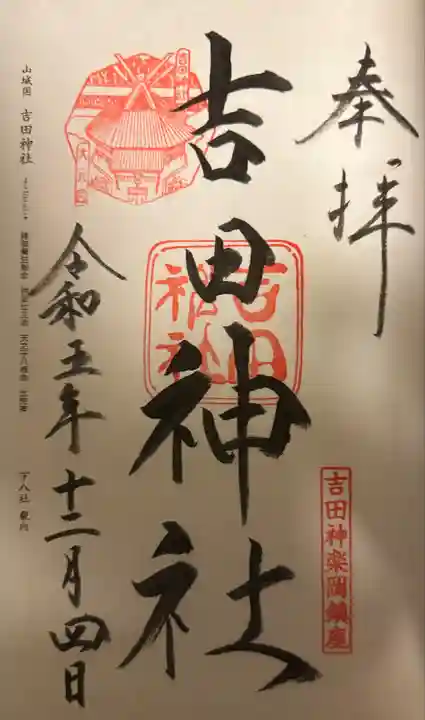 奉拝
吉田神楽岡鎮座
吉田神社
吉田神社
令和五年十二月四日
山城国 吉田神社